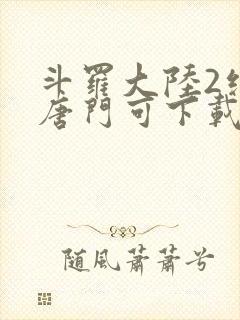 斗羅大陸2
唐門可下載
随風蕭蕭兮